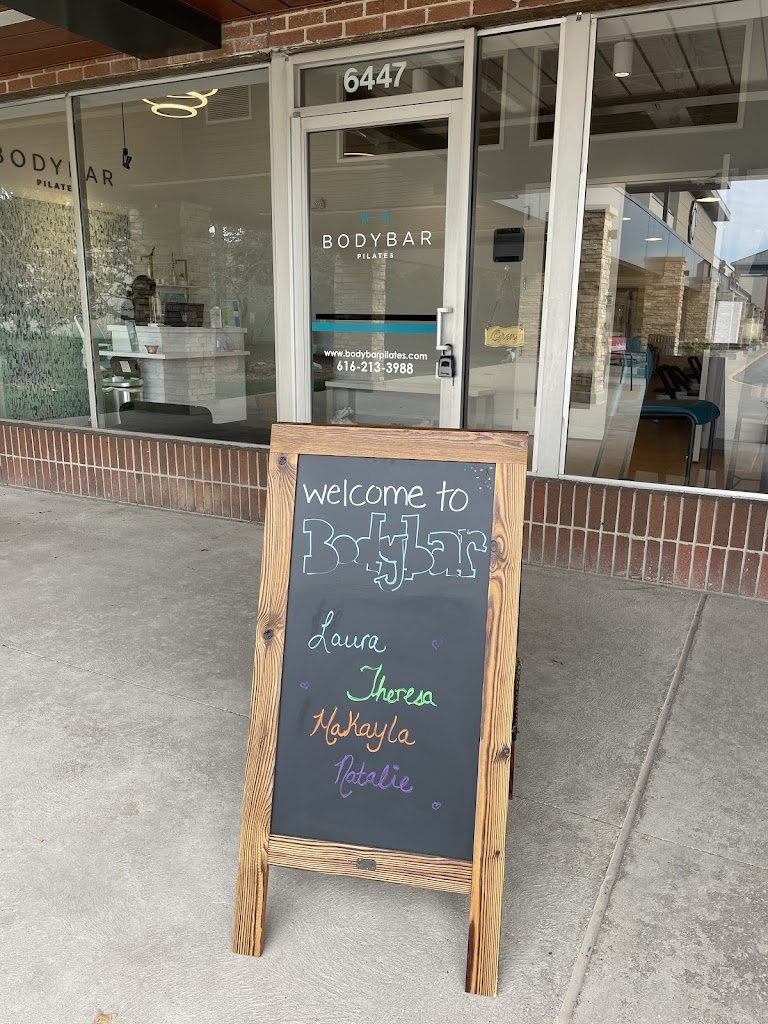 6447
BODYBAR
PILATES
BODYBAR
PILATES
www.bodybarpilates.com
616-213-3988
welcome to
Bodybar
Laura
Theresa
Makayla
Natalie